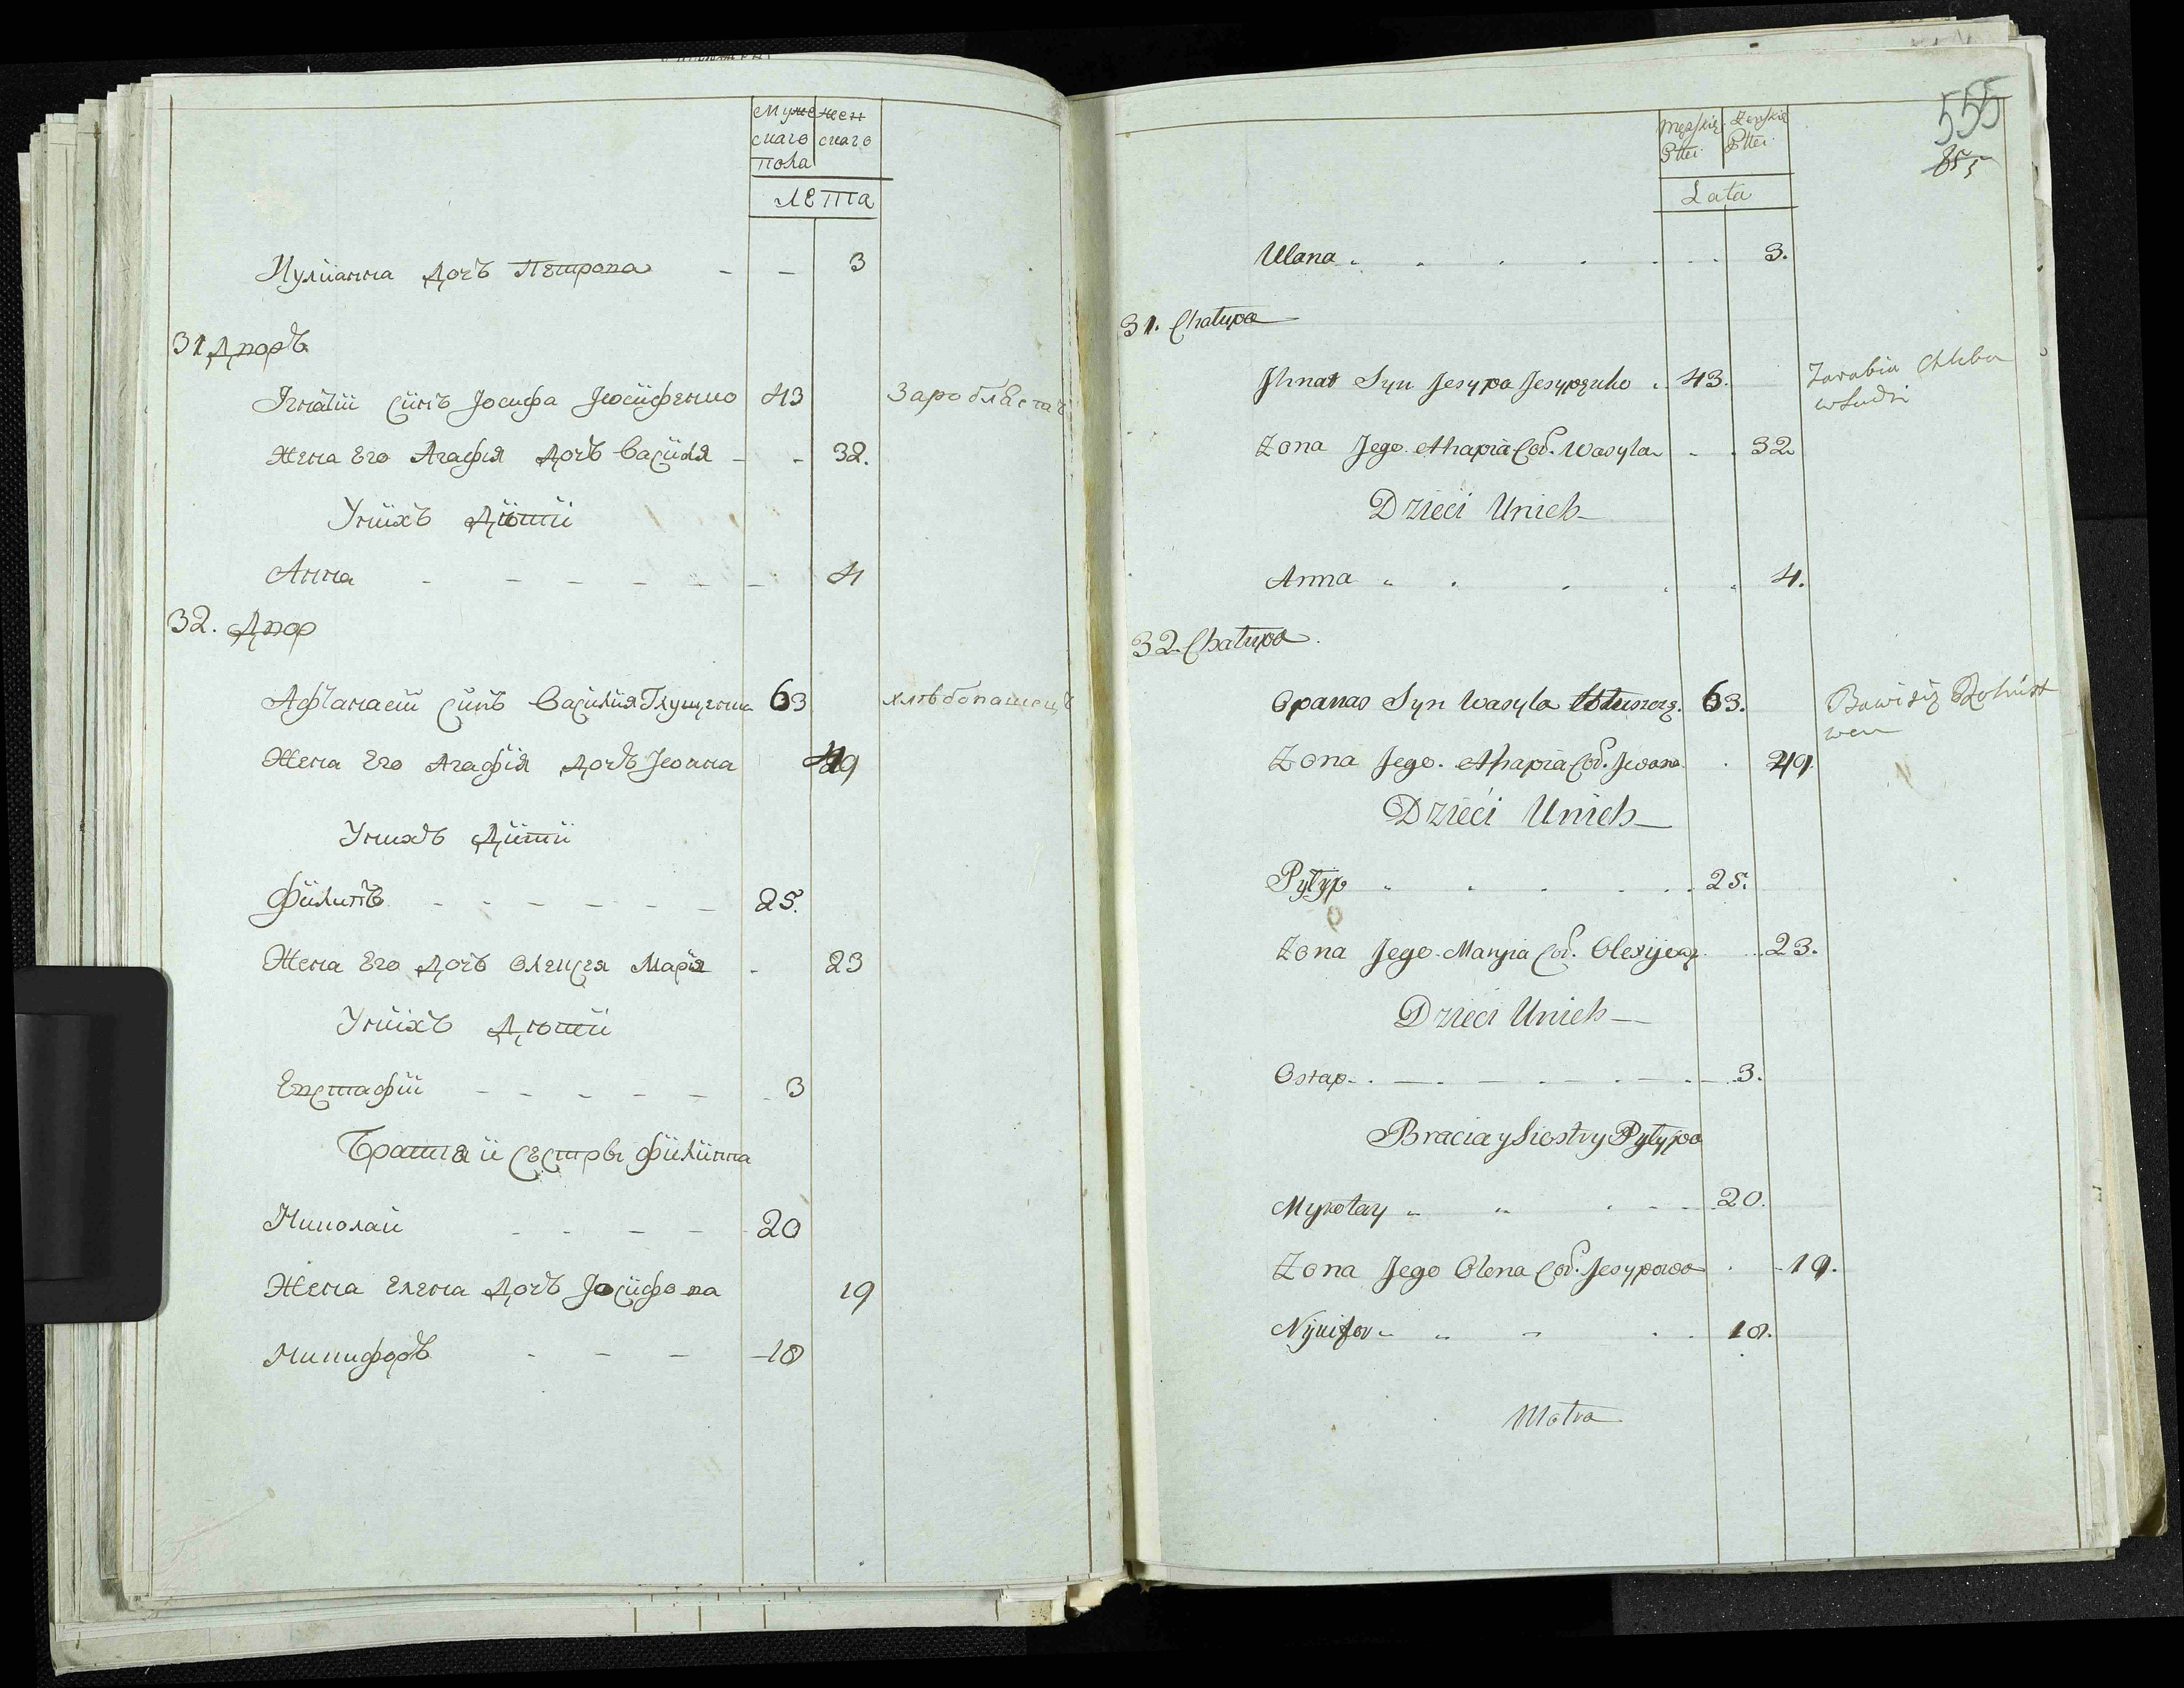 Муже жен
скаго скаго
пола
лѣта
Иулианна дочъ Петрова - - 3
31 Дворъ
Игнатій синъ Іосифа Іосифенко 43 Заробляетъ
Жена Его Агафія дочъ Василя - - 32.
Унихъ дѣти
Анна - - - - - - 4
32. Двор
Афанасій синъ Василія Глущенко 63 хлѣбопашецъ
Жена Его Агафія дочъ Іоанна 49
Унихъ Дѣти
Филипъ - - - - - - 25.
Жена Его дочъ Олексея Марія - 23
Унихъ Дѣти
Евстафій - - - - - - 3
Братія и сестры Филипа
Николай - - - - - 20
Жена Елена дочъ Іосифова 19
Никифоръ - - - - 10
Męzskiey Płci Żenskiey Płci
Lata
555
855
Ulana . . . . . . . 3.
31. Chałupa
Jhnat Syn Jesypa Jesypęnko . 43. Zarabia Chleba w Ludzi
Zona Jego Ahapia Cor. Wasyla - . 32
Dzieci Unich
Anna . . . . . 4.
32. Chałupa.
Opanas Syn Wasyla 63. Bawi się
Zona Jego. Ahapia Cor. Jwana . 49.
Dzieci Unich
Pyłyp . . . . . . 25.
Zona Jego Maryia Cor. Olexijewa ... 23.
Dzieci Unich
Ostap - . - . - . - . - 3.
Bracia y Siostry Pyłypa
Mykołay . . . - - 20.
Zona Jego Olena Cor. Jesypowa . - 19.
Nykifor - . - . . 10.
Motra